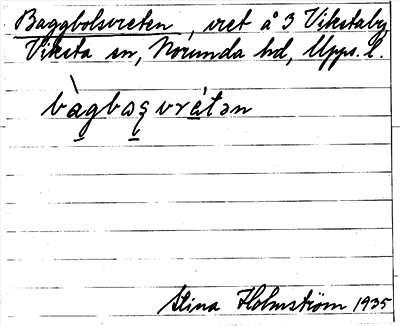 Baggbolsvreten, vret å 3 Vikstaby
Viksta sn, Norunda hd, Upps. l.
bàgbo̱ș vráṯən
Stina Holmström 1935